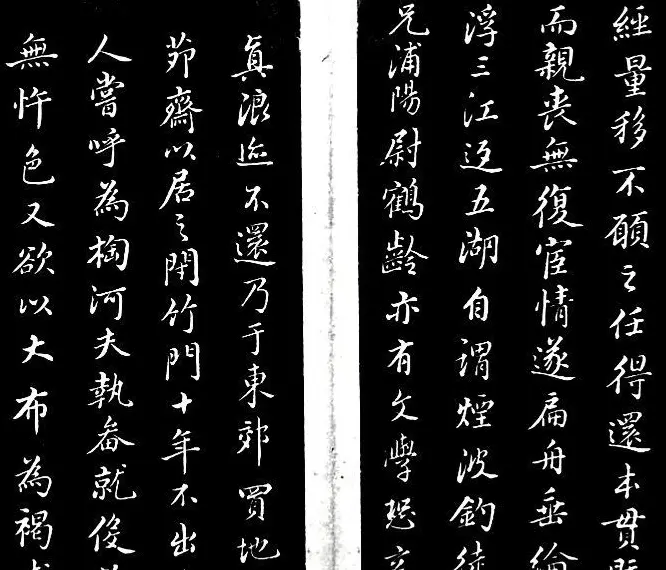 經量移不願之任得還本貫既
而親喪無復宦情遂扁舟垂綸
浮三江泛五湖自謂煙波釣徒
兄浦陽尉鶴齡亦有文學恐玄
真浪迹不還乃于東郊買地
茆齋以居之閑竹門十年不出
人嘗呼為掏河夫執畚就役
無忤色又欲以大布為褐